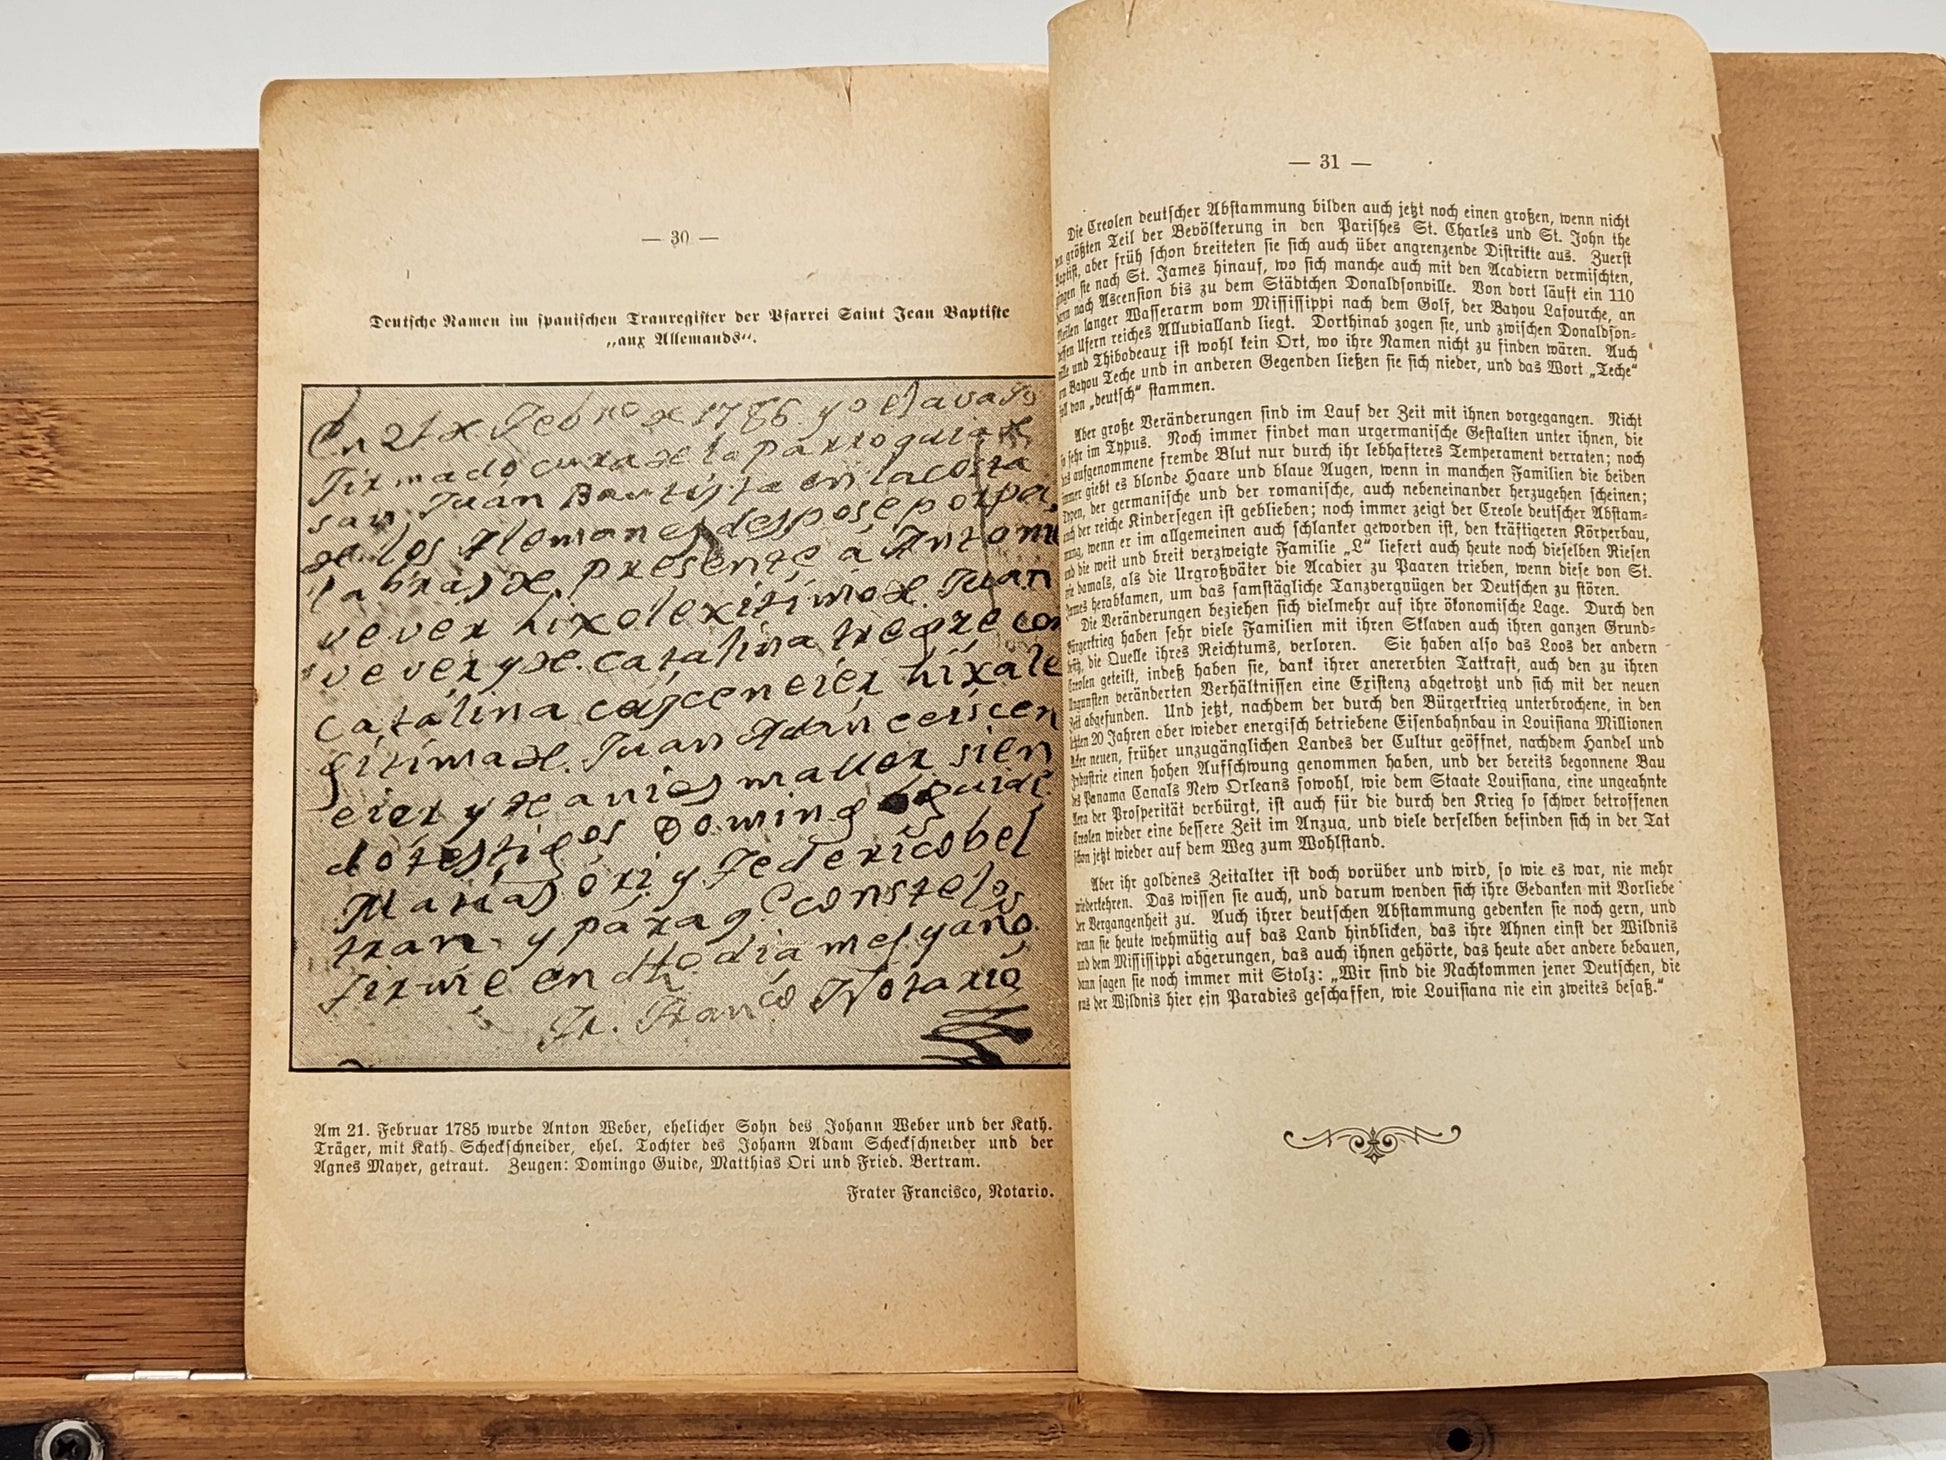 — 30 —
Deutsche Namen im spanischen Trauregister der Pfarrei Saint Jean Baptiste
„aux Allemands“.
En 21 de Febro de 1786 yo el avajo
Firmado cura de la parroquia de
san Juan Bautista en la costa
de los Alemanes despose por pa
labras de presente á Antonio
vever hixo lexitimo de Juan
vever y de Catalina tregre con
Catalina hixa le
gitima de Juan Adan ceiscen
eier y de anies maller sien
do testigos Domingo guide
Matias ori y Federico bel
tran y para q.e conste lo
firmé en dho dia mes y año
Fr. Franco Notario
Am 21. Februar 1785 wurde Anton Weber, ehelicher Sohn des Johann Weber und der Kath.
Träger, mit Kath. Scheckschneider, ehel. Tochter des Johann Adam Scheckschneider und der
Agnes Mayer, getraut. Zeugen: Domingo Guide, Matthias Ori und Fried. Bertram.
Frater Francisco, Notario.
— 31 —
Die Creolen deutscher Abstammung bilden auch jetzt noch einen großen, wenn nicht
größten Teil der Bevölkerung in den Parishes St. Charles und St. John the
Baptist, aber früh schon breiteten sie sich auch über angrenzende Distrikte aus. Zuerst
gingen sie nach St. James hinauf, wo sich manche auch mit den Acadiern vermischten,
nach Ascension bis zu dem Städtchen Donaldsonville. Von dort läuft ein 110
Meilen langer Wasserarm vom Mississippi nach dem Golf, der Bayou Lafourche, an
dessen Ufern reiches Alluvialland liegt. Dorthinab zogen sie, und zwischen Donaldson-
ville und Thibodeaux ist wohl kein Ort, wo ihre Namen nicht zu finden wären. Auch
Bayou Teche und in anderen Gegenden ließen sie sich nieder, und das Wort „Teche“
soll von „deutsch“ stammen.
Aber große Veränderungen sind im Lauf der Zeit mit ihnen vorgegangen. Nicht
so sehr im Typus. Noch immer findet man urgermanische Gestalten unter ihnen, die
das aufgenommene fremde Blut nur durch ihr lebhafteres Temperament verraten; noch
immer giebt es blonde Haare und blaue Augen, wenn in manchen Familien die beiden
Typen, der germanische und der romanische, auch nebeneinander herzugehen scheinen;
auch der reiche Kindersegen ist geblieben; noch immer zeigt der Creole deutscher Abstam-
mung, wenn er im allgemeinen auch schlanker geworden ist, den kräftigeren Körperbau,
und die weit und breit verzweigte Familie „L“ liefert auch heute noch dieselben Riesen
wie damals, als die Urgroßväter die Acadier zu Paaren trieben, wenn diese von St.
James herabkamen, um das samstägliche Tanzvergnügen der Deutschen zu stören.
Die Veränderungen beziehen sich vielmehr auf ihre ökonomische Lage. Durch den
Bürgerkrieg haben sehr viele Familien mit ihren Sklaven auch ihren ganzen Grund-
besitz, die Quelle ihres Reichtums, verloren. Sie haben also das Loos der andern
Creolen geteilt, indeß haben sie, dank ihrer anererbten Tatkraft, auch den zu ihren
Ungunsten veränderten Verhältnissen eine Existenz abgetrotzt und sich mit der neuen
Zeit abgefunden. Und jetzt, nachdem der durch den Bürgerkrieg unterbrochene, in den
letzten 20 Jahren aber wieder energisch betriebene Eisenbahnbau in Louisiana Millionen
Acker neuen, früher unzugänglichen Landes der Cultur geöffnet, nachdem Handel und
Industrie einen hohen Aufschwung genommen haben, und der bereits begonnene Bau
des Panama Canals New Orleans sowohl, wie dem Staate Louisiana, eine ungeahnte
Aera der Prosperität verbürgt, ist auch für die durch den Krieg so schwer betroffenen
Creolen wieder eine bessere Zeit im Anzug, und viele derselben befinden sich in der Tat
schon jetzt wieder auf dem Weg zum Wohlstand.
Aber ihr goldenes Zeitalter ist doch vorüber und wird, so wie es war, nie mehr
wiederkehren. Das wissen sie auch, und darum wenden sich ihre Gedanken mit Vorliebe
der Vergangenheit zu. Auch ihrer deutschen Abstammung gedenken sie noch gern, und
wenn sie heute wehmütig auf das Land hinblicken, das ihre Ahnen einst der Wildnis
und dem Mississippi abgerungen, das auch ihnen gehörte, das heute aber andere bebauen,
dann sagen sie noch immer mit Stolz: „Wir sind die Nachkommen jener Deutschen, die
aus der Wildnis hier ein Paradies geschaffen, wie Louisiana nie ein zweites besaß.“